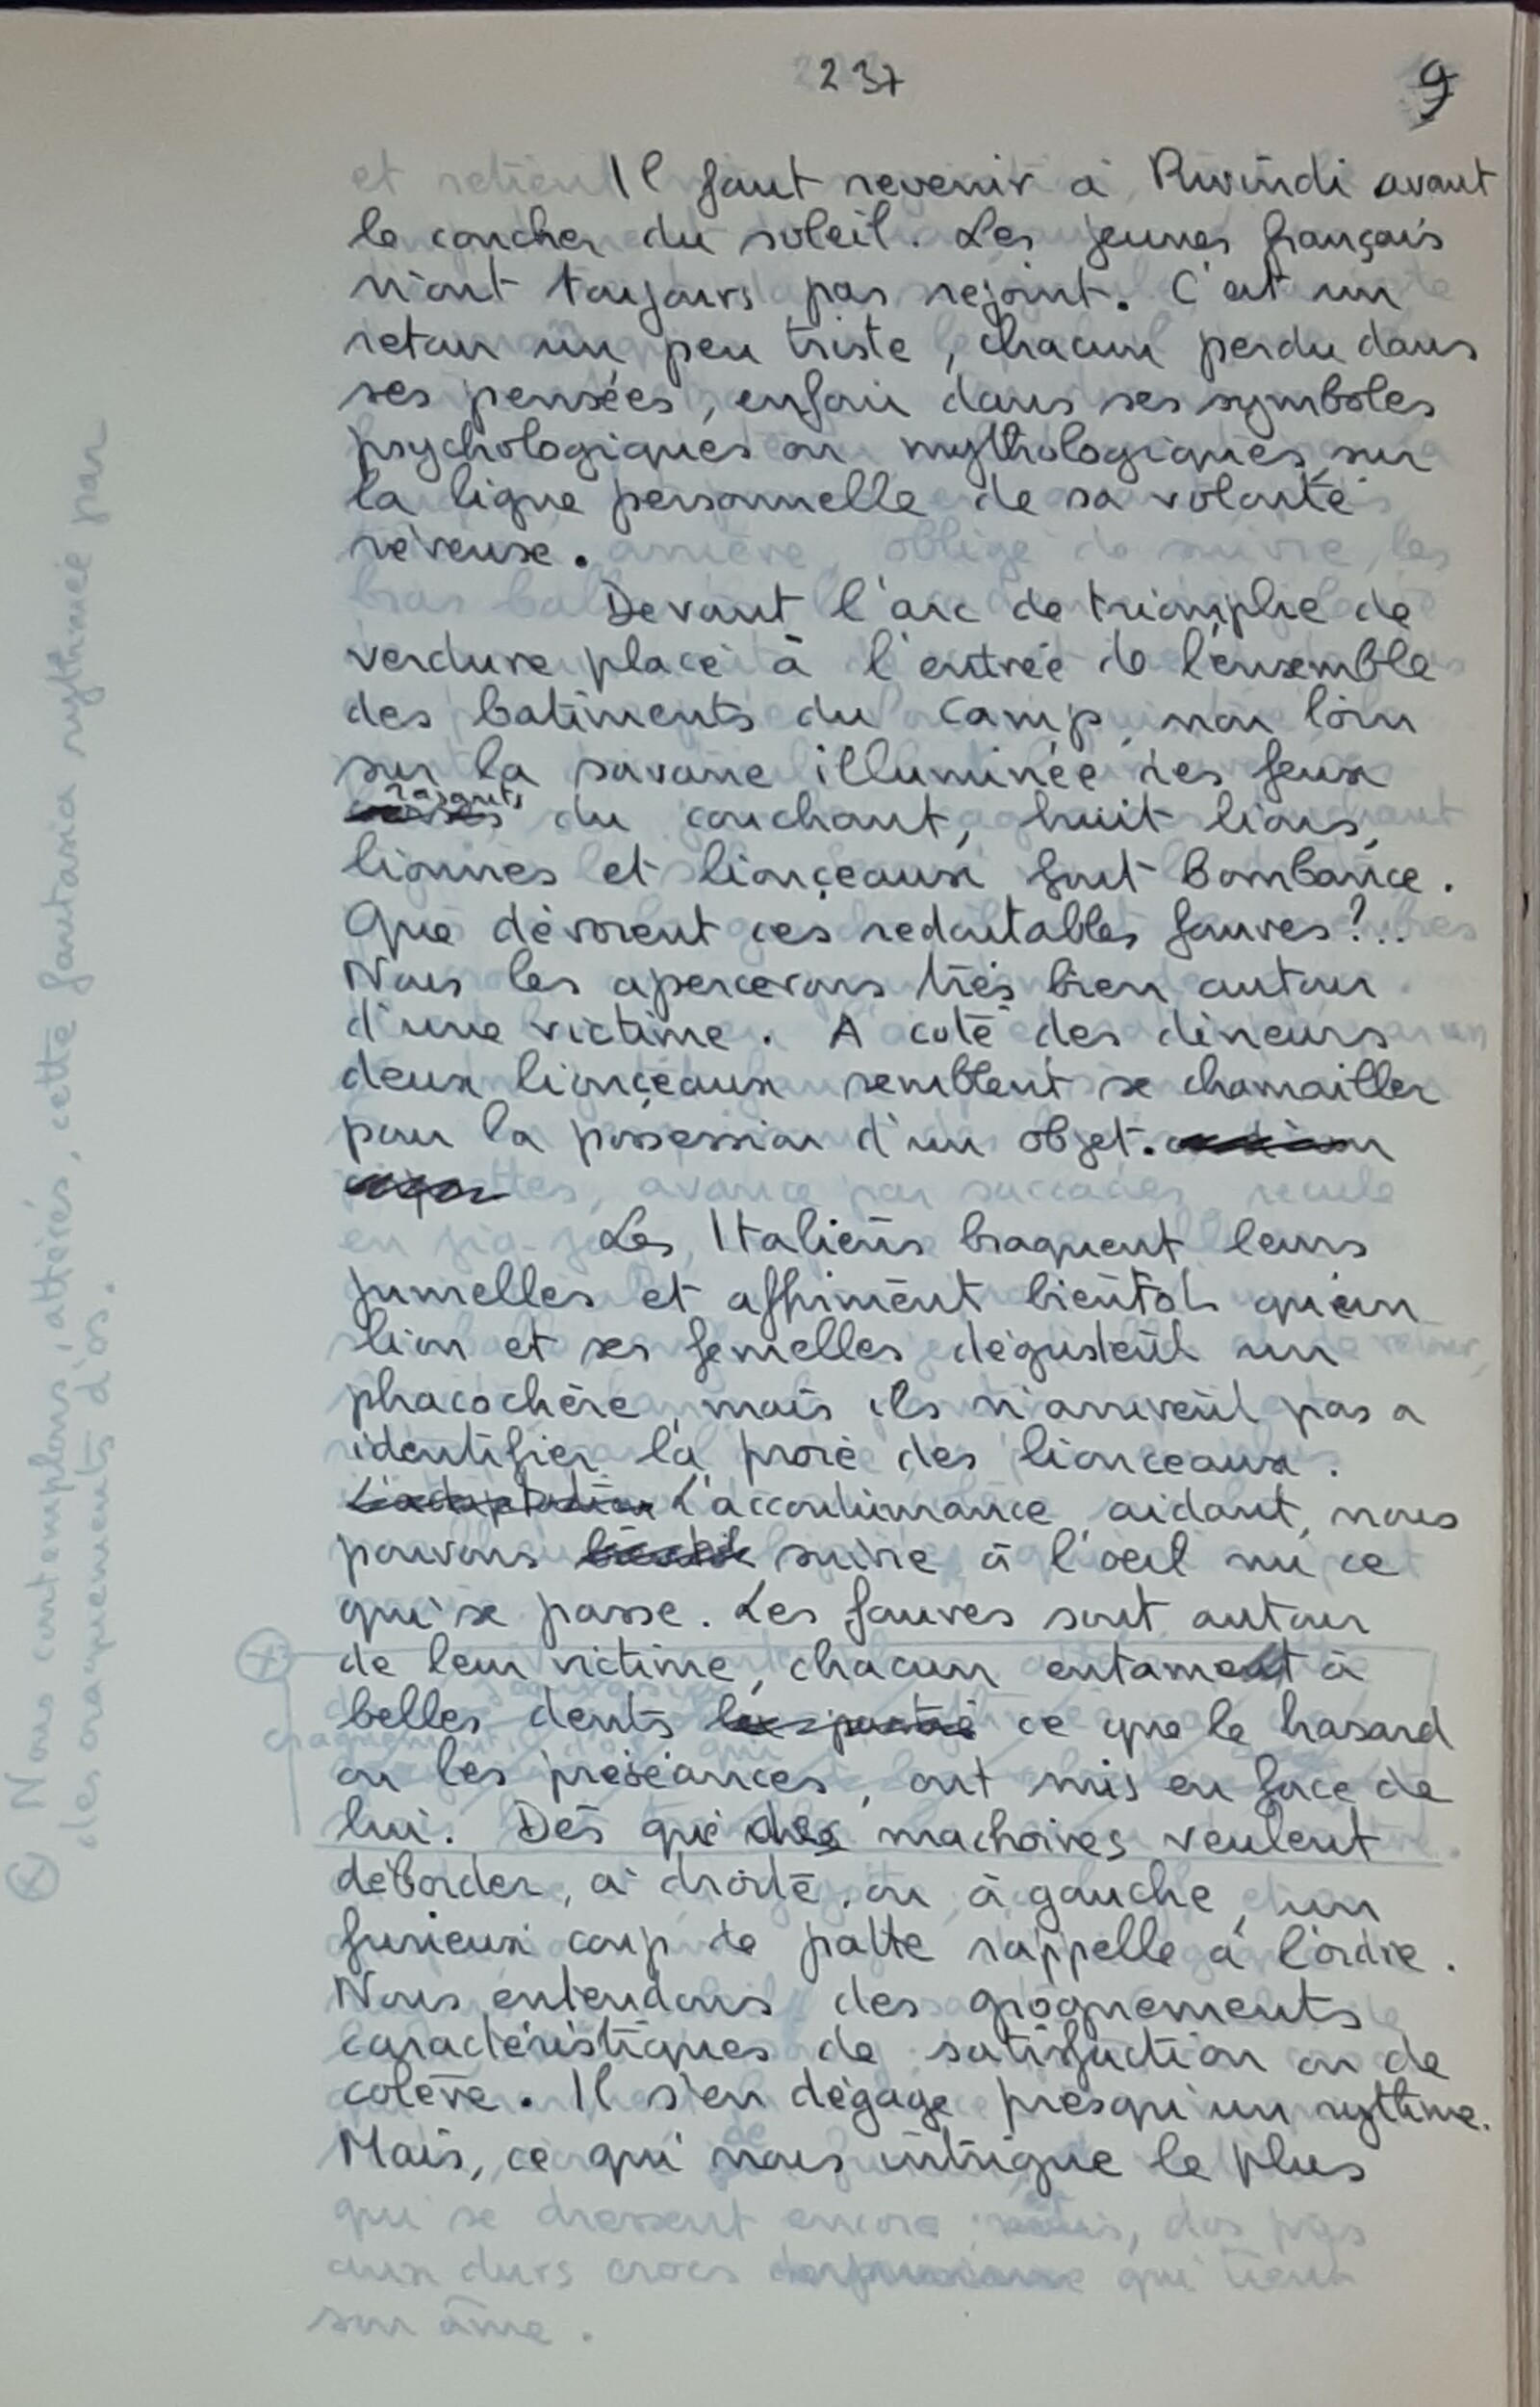 237
9
Il faut revenir à Rwindi avant
le coucher du soleil. Les jeunes français
n'ont toujours pas rejoint. C'est un
retour un peu triste, chacun perdu dans
ses pensées, enfoui dans ses symboles
psychologiques ou mythologiques, sur
la ligne personnelle de sa volonté
rêveuse.
Devant l'arc de triomphe de
verdure placé à l'entrée de l'ensemble
des batiments du camp, non loin
sur la savane illuminée des feux
rasants du couchant, huit lions,
lionnes et lionçeaux font bombance.
Que dévorent ces redoutables fauves?..
Nous les apercevons très bien autour
d'une victime. A coté des dineurs
deux lionçeaux semblent se chamailler
pour la possession d'un objet.
Les Italiens braquent leurs
jumelles et affirment bientôt qu'un
lion et ses femelles dégustent un
phacochère, mais ils n'arrivent pas a
identifier la proie des lionceaux.
L'accoutumance aidant, nous
pouvons suivre à l'oeil nu ce
qui se passe. Les fauves sont autour
de leur victime, chacun entamant à
belles dents ce que le hasard
ou les préséances, ont mis en face de
lui. Dès que des machoires veulent
déborder, à droite, ou à gauche, un
furieux coup de patte rappelle à l'ordre.
Nous entendons des grognements
caractéristiques de satisfaction ou de
colère. Il s'en dégage presqu'un rythme.
Mais, ce qui nous intrigue le plus
qui se dressent encore
aux durs crocs qui tient
son âme.
Nous contemplons, attérés, cette fantasia rythmée par
des craquements d'os.